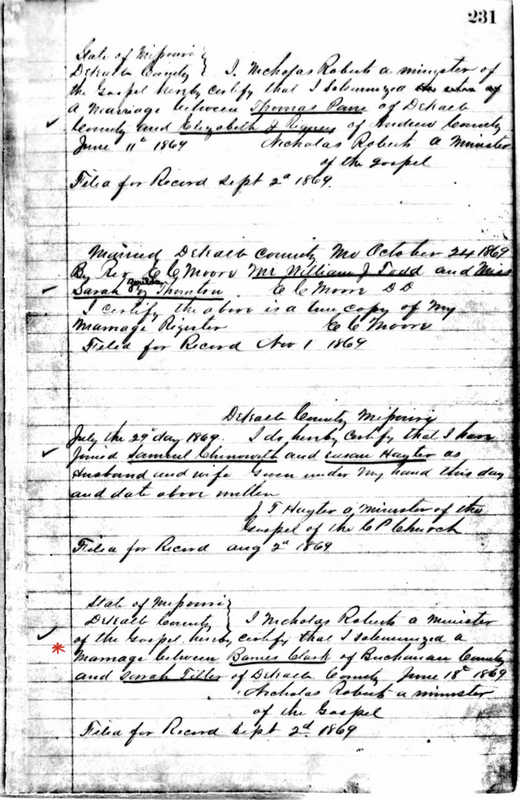 231
State of Missouri }
DeKalb County } I. Nicholas Roberts a minister of
the Gospel hereby certify that I Solemnized
a Marriage between Thomas Pain of DeKalb
County and Elizabeth J of Andrew County
June 11th 1869 Nicholas Roberts a Minister
of the gospel
Filed for Record Sept 2d 1869.
Married DeKalb County Mo October 24 1869
By Rev. C C Moore Mr William J Todd and Miss
Sarah Thornton C C Moore DD
I certify the above is a true copy of my
Marriage Register C C Moore
Filed for Record Nov 1 1869
DeKalb County Missouri
July the 29th day 1869. I do hereby certify that I have
joined Samuel Chenowith and Susan Hayter as
Husband and wife Given under my hand this day
and date above written
J T Hayter a minister of the
Gospel of the C P Church
Filed for Record aug 2d 1869
State of Missouri }
DeKalb County } I Nicholas Roberts a minister
of the Gospel hereby certify that I Solemnized a
Marriage between Barnes Clark of Buchanan County
and Sarah of DeKalb County June 18th 1869
Nicholas Roberts a minister
of the Gospel
Filed for Record Sept 2d 1869